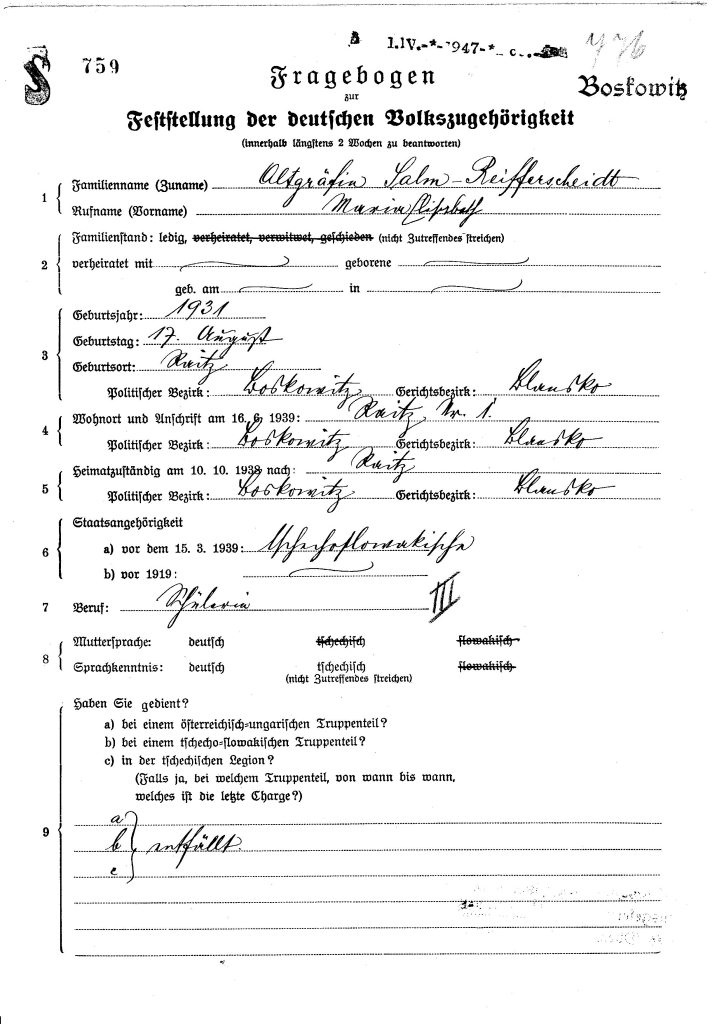 759
1.IV.-*-1947-*
776
Fragebogen
Boskowitz
zur
Feststellung der deutschen Volkszugehörigkeit
(innerhalb längstens 2 Wochen zu beantworten)
1 Familienname (Zuname) Altgräfin Salm-Reifferscheidt
Rufname (Vorname) Maria Elisabeth
Familienstand: ledig, verheiratet, verwitwet, geschieden (nicht Zutreffendes streichen)
2 verheiratet mit geborene
geb. am in
Geburtsjahr: 1931
Geburtstag: 17. August
3 Geburtsort: Raitz
Politischer Bezirk: Boskowitz Gerichtsbezirk: Blansko
4 Wohnort und Anschrift am 16. 6 1939: Raitz Nr. 1.
Politischer Bezirk: Boskowitz Gerichtsbezirk: Blansko
Heimatzuständig am 10. 10. 1938 nach: Raitz
5 Politischer Bezirk: Boskowitz Gerichtsbezirk: Blansko
Staatsangehörigkeit
6 a) vor dem 15. 3. 1939: tschechoslowakische
b) vor 1919:
7 Beruf: Schülerin III
8 Muttersprache: deutsch tschechisch slowakisch
Sprachkenntnis: deutsch tschechisch slowakisch
(nicht Zutreffendes streichen)
Haben Sie gedient?
a) bei einem österreichisch-ungarischen Truppenteil?
b) bei einem tschecho-slowakischen Truppenteil?
c) in der tschechischen Legion?
(Falls ja, bei welchem Truppenteil, von wann bis wann,
welches ist die letzte Charge?)
a
9 b entfällt.
c